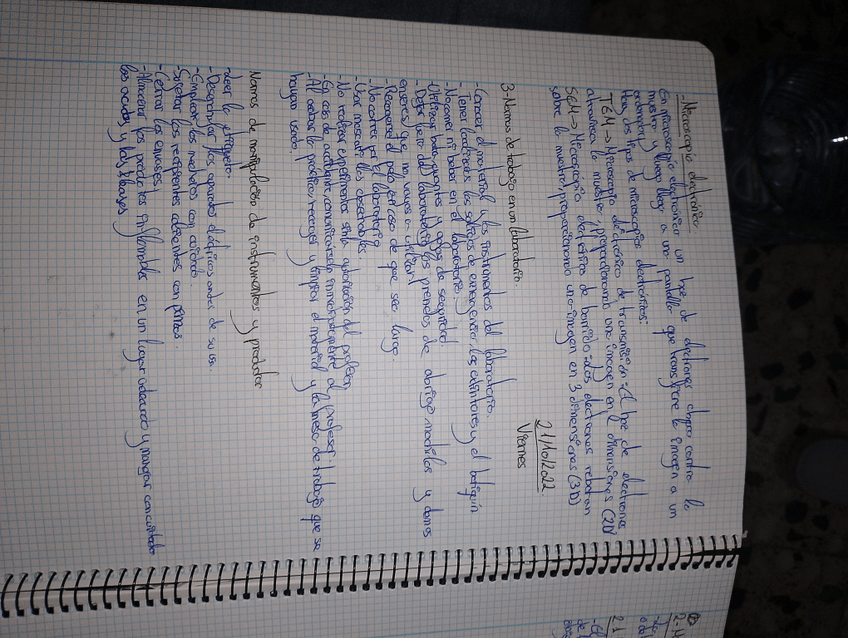 -Microscopio electrónico
En microscopio electrónico un haz de electrones choca contra la
muestra y luego llega a una pantalla que transfiere la imagen a un
ordenador.
Hay dos tipos de microscopios electrónicos:
TEM → Microscopio electrónico de transmisión: el haz de electrones
atraviesa la muestra, proporcionando una imagen en 2 dimensiones (2D)
SEM → Microscopio electrónico de barrido: Los electrones rebotan
sobre la muestra, proporcionando una imagen en 3 dimensiones (3D)
21/10/2022
Viernes
3-Normas de trabajo en un laboratorio.
-Conocer el material y los instrumentos del laboratorio.
-Tener localizados las salidas de emergencia, los extintores y el botiquín
-No comer ni beber en el laboratorio.
-Utilizar bata, guantes y gafas de seguridad
-Dejar fuera del laboratorio las prendas de abrigo mochilas y demas
enseres que no vayas a utilizar
-Recogerse el pelo en caso de que sea largo.
-No correr por el laboratorio
-Usar mascarillas desechables.
-No realizar experimentos sin la autorización del profesor
-En caso de accidente, comunicárselo inmediatamente al profesor.
-Al acabar la práctica, recoger y limpiar el material y la mesa de trabajo que se
hayan usado.
Normas de manipulación de instrumentos y productos
-Leer la etiqueta.
-Desenchufar los aparatos eléctricos antes de su uso.
-Emplear los mecheros con cuidado.
-Sujetar los recipientes calientes con pinzas
-Cerrar los envases
-Almacenar los productos inflamables en un lugar adecuado y manejar con cuidado
los ácidos y las bases